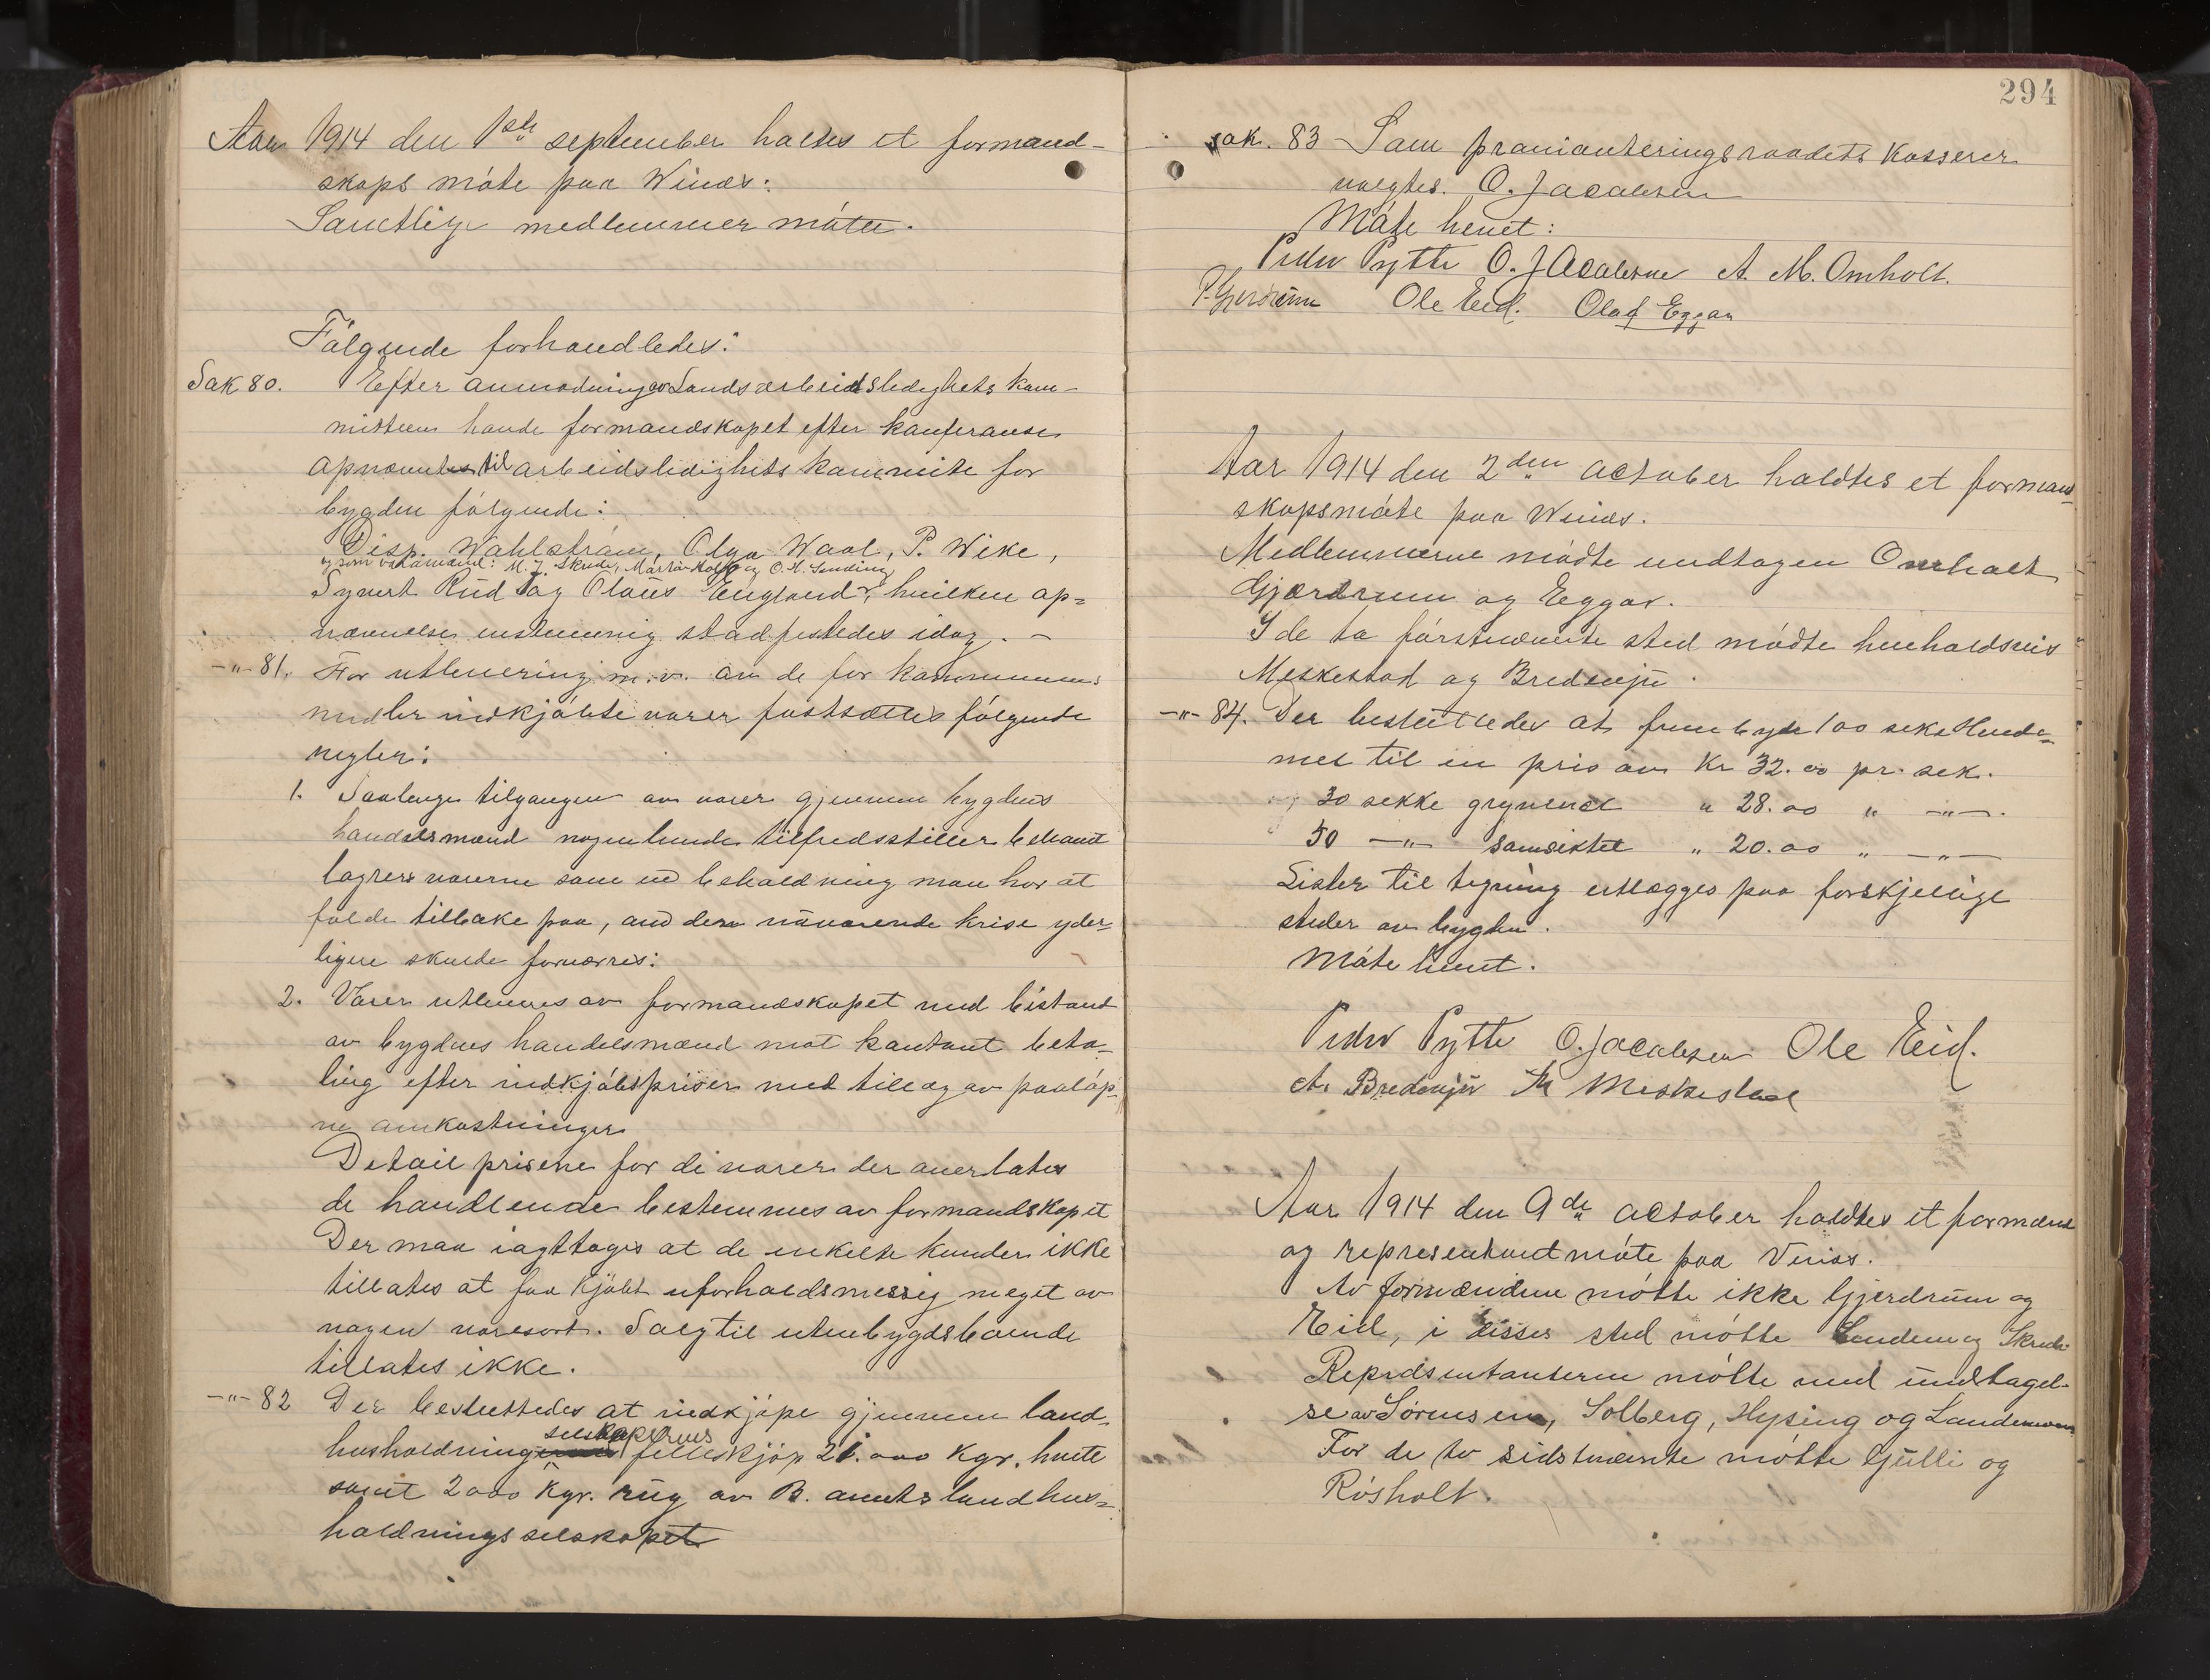 Aar 1914 den 1ste september holtes et formand-
skops møte paa Winæs:
Samtlige medlemmer møtte.
Følgende forhandledes:
Sak 80. Efter anmodning av Landsarbeidsledighets kom-
mitteen havde formandskapet efter konferanse
opnævnt til arbeidsledighets kommite for
bygden følgende:
Disp. Wahlstrøm, Olga Waal, P. Wike,
og som varamænd: M. J. Skrede, Martin Kolf og O. H. Sending
Synert Rud og Olaus Englund, hvilken op=
nævnelse enstemmig stadfestedes idag. –
–"– 81. For utlevering m.v. av de for kommunens
midler indkjøpte varer fastsættes følgende
regler:
1. Saalenge tilgangen av varer gjennem bygdens
handelsmænd nogenlunde tilfredsstiller behovet
lagres varerne som en beholdning man har at
falde tilbake paa, om den nuværende krise yder-
ligere skulde forværres:
2. Varer utleveres av formandskapet med bistand
av bygdens handelsmænd mot kontant beta-
ling efter indkjøpspriser med tillæg av paaløp-
ne omkostninger
Detail prisene for de varer der overlates
de handlende bestemmes av formandskapet
Der maa iagttages at de enkelte kunder ikke
tillates at faa kjøbt uforholdsmessig meget av
nogen varesort. Salg til utenbygdsboende
tillates ikke.
–"– 82 Der besluttedes at indkjøpe gjennem land-
selskapernes
husholdnings felleskjøp 21.000 kgr. hvete
samt 2000 kgr. rug av B. amts landhus=
holdningsselskapet
294
sak. 83 – Som provianteringsraadets kasserer
valgtes. O. Jacobsen
Møte hevet:
Peder Pytte O. Jacobsen A. M. Omholt.
P. Gjerdrum Ole Eid. Olaf Eggar
Aar 1914 den 2den october holdtes et formand
skapsmøte paa Winæs.
Medlemmerne mødte undtagen Omholt
Gjærdrum og Eggar.
I de to førstnævnte sted mødte henholdsvis
Meskestad og Bredenju.
–"– 84. Der besluttedes at frembyde 100 sekk Hvede-
mel til en pris av Kr 32.00 pr. sek.
og 30 sekke grynmel " 28.00 " –"–.
50 –"– samsiktet " 20.00 " –"–
Lister til tegning utlægges paa forskjellige
steder av bygden.
Møte hevet.
Peder Pytte O. Jacobsen Ole Eid.
A. Bredenju Th Meskestad
Aar 1914 den 9de october holdtes et formænd
og representantmøte paa Vinæs.
Av formændene møtte ikke Gjerdrum og
Eid, i disses sted møtte Lundem og Skrede.
Repræsentanterne møtte med undtagel-
se av Sørensen, Solberg, Hysing og Landemoen
For de to sidstnævnte møtte Gulli og
Røsholt.